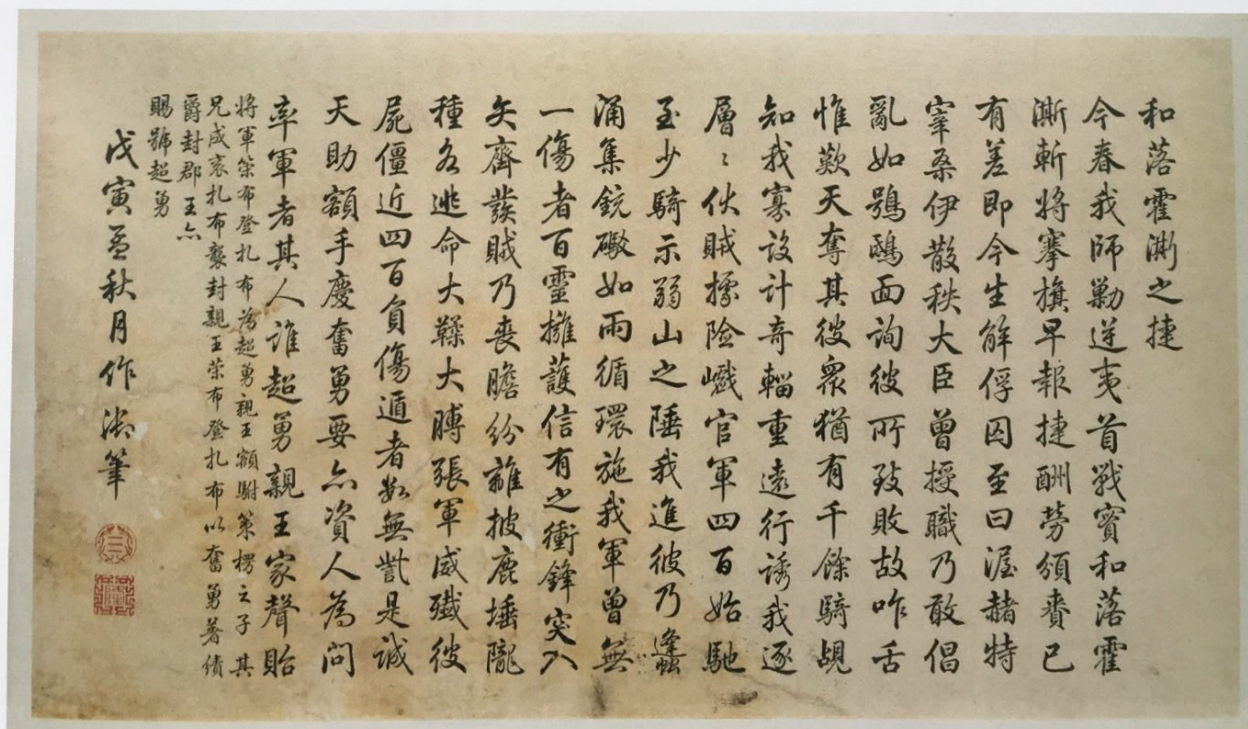 和落霍澌之捷
今春我師勦逆夷首戰實和落霍
澌斬將搴旗早報捷酬勞頒賚已
有差即今生解俘囚至曰渥赭特
宰桑伊散秩大臣曾授職乃敢倡
亂如鴞鴟面詢彼所致敗故咋舌
惟歎天奪其彼眾猶有千餘騎覘
知我寡設計奇輜重遠行誘我逐
層〻伏賊據險巇官軍四百始馳
至少騎示弱山之陲我進彼乃蜂
涌集銃礮如雨循環施我軍曾無
一傷者百靈擁護信有之衝鋒突入
矢齊發賊乃喪膽紛離披鹿埵隴
種各逃命大鞣大膊張軍威殲彼
屍僵近四百負傷遁者數無訾是誠
天助額手慶奮勇要亦資人為問
率軍者其人誰超勇親王家聲貽
將軍策布登扎布為超勇親王額駙策楞之子其
兄成袞扎布襲封親王策布登扎布以奮勇著績
爵封郡王亦
賜號超勇
戊寅孟秋月作 御筆